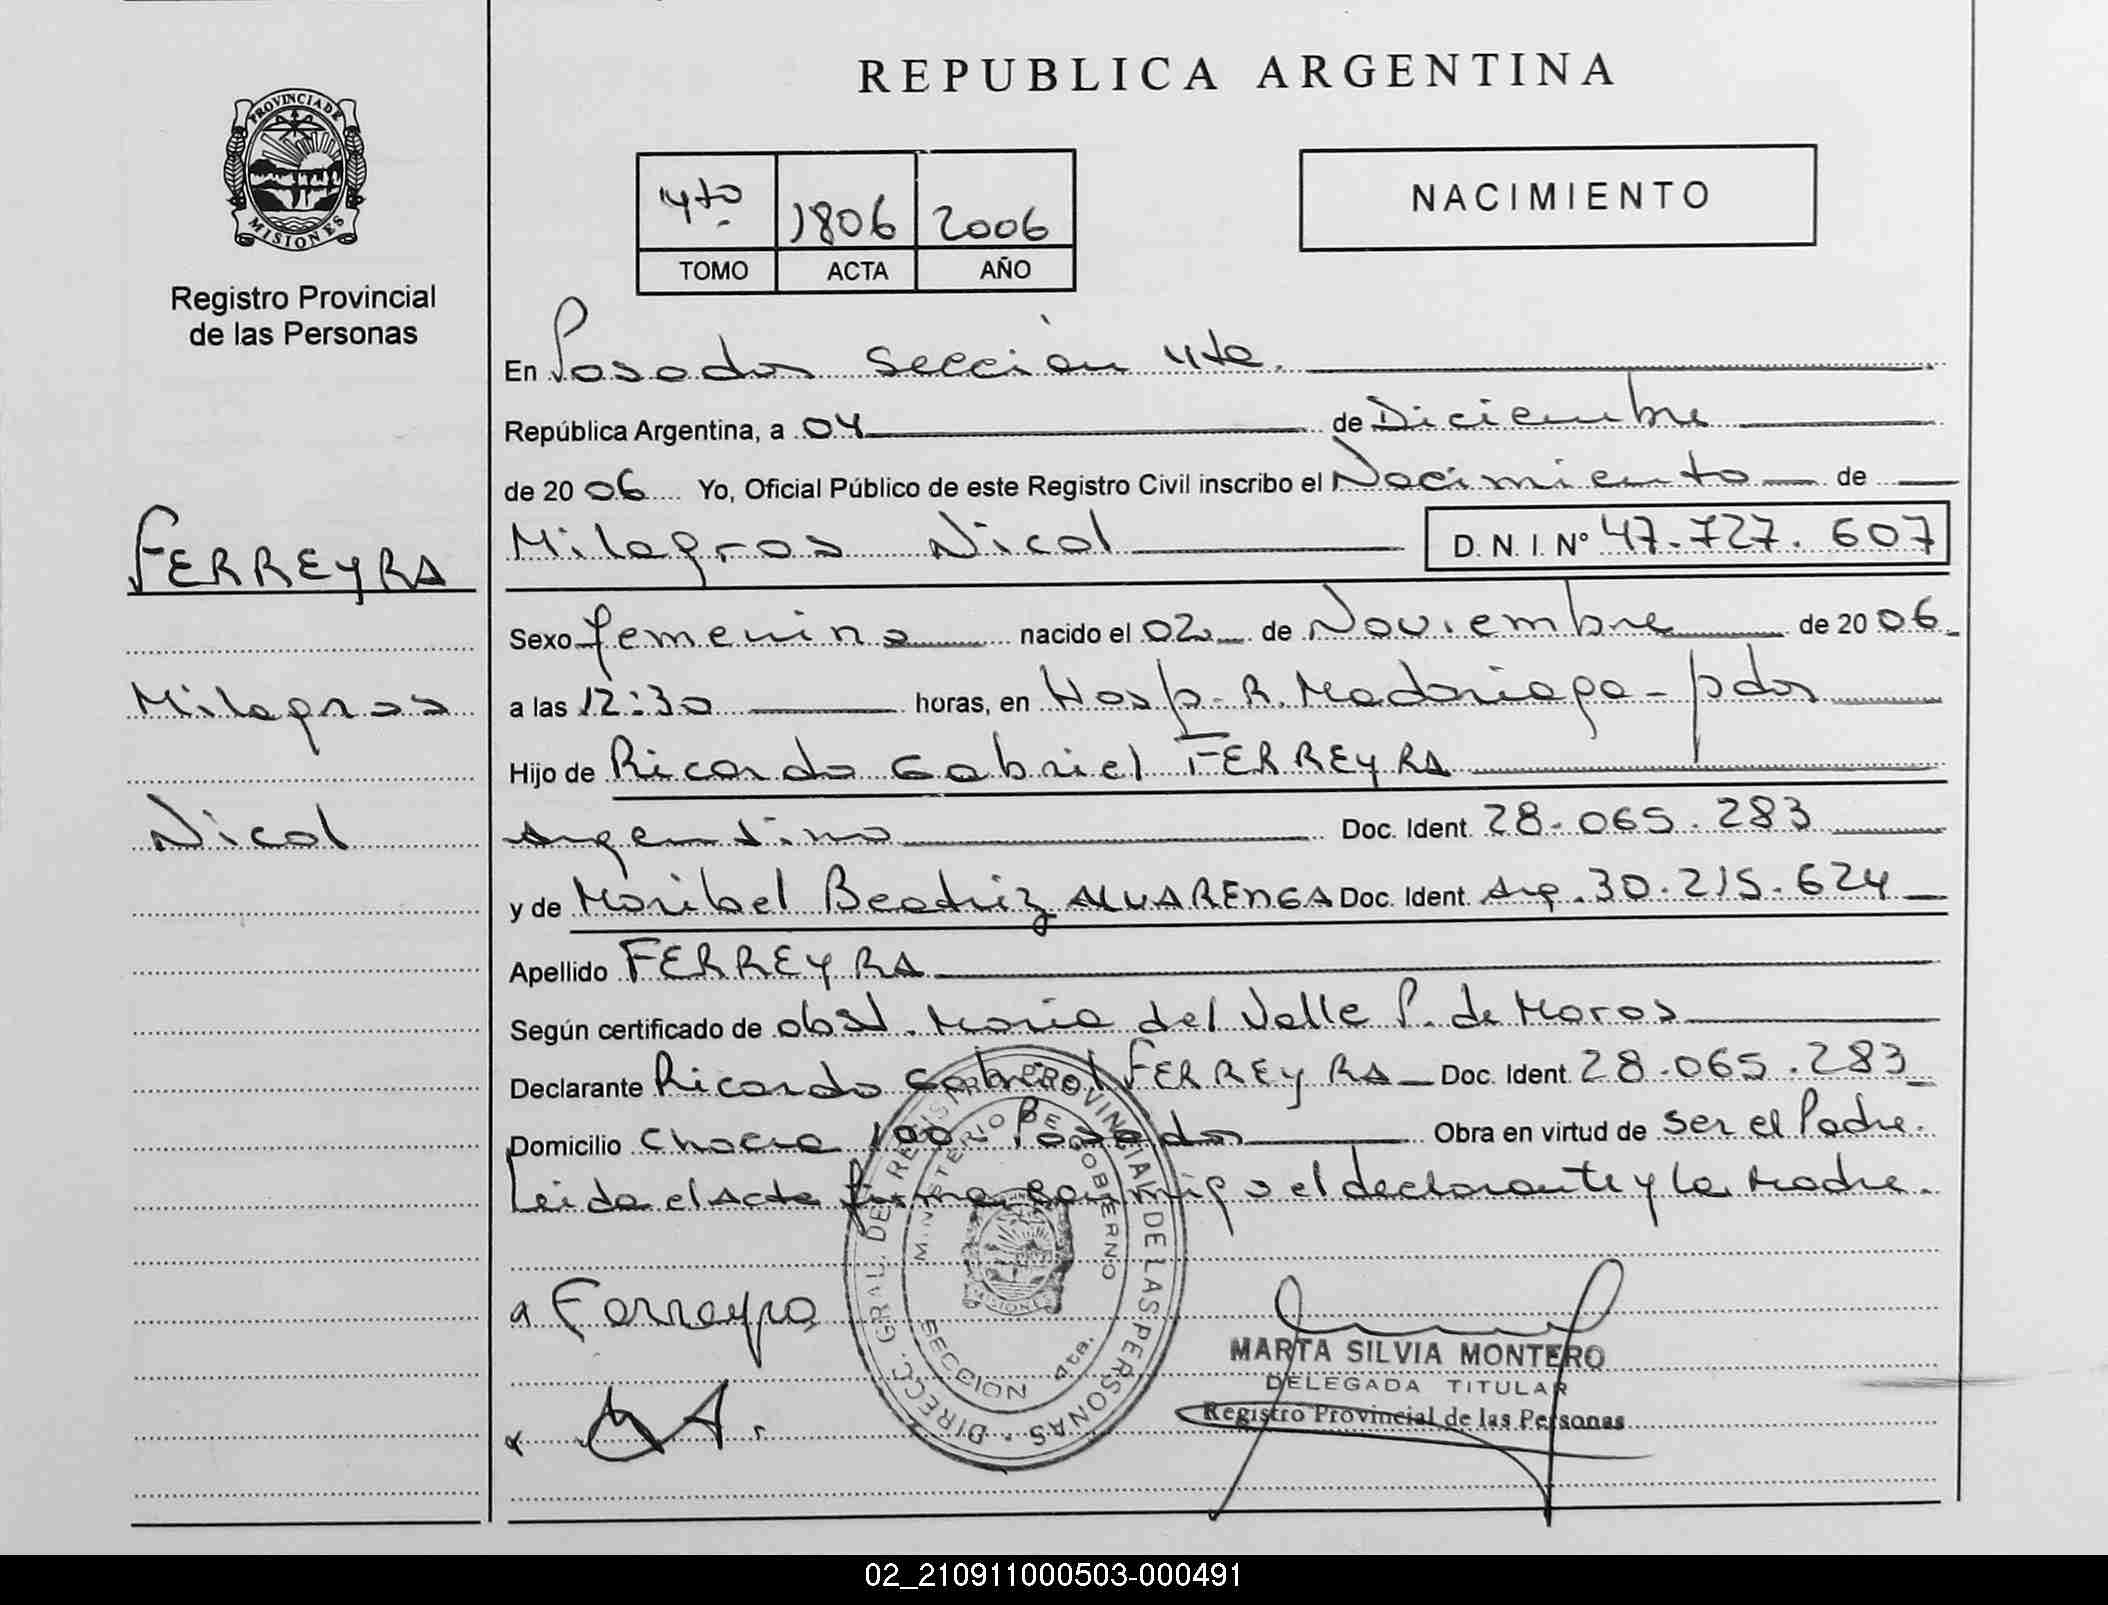 REPUBLICA ARGENTINA
PROVINCIA DE
MISIONES
Registro Provincial
de las Personas
4to 1806 2006
TOMO ACTA AÑO
NACIMIENTO
En Posadas Sección 4ta.
República Argentina, a 04 de Diciembre
de 2006 Yo, Oficial Público de este Registro Civil inscribo el Nacimiento de
Milagros Nicol D.N.I. Nº 47.727.607
FERREYRA
Milagros
Nicol
Sexo femenino nacido el 02 de Noviembre de 2006
a las 12:30 horas, en Hosp. R. Madariaga - pdas
Hijo de Ricardo Gabriel FERREYRA
Argentino Doc. Ident. 28.065.283
y de Maribel Beatriz ALVARENGA Doc. Ident. Arg. 30.215.624
Apellido FERREYRA
Según certificado de obst. María del Valle P. de Maros
Declarante Ricardo Gabriel FERREYRA Doc. Ident. 28.065.283
Domicilio Chacra 100 - Posadas Obra en virtud de ser el Padre.
Leida el Acta firma conmigo el declarante y la Madre.
a Ferreyra
DIRECC. GRAL. DE REGISTRO PROVINCIAL DE LAS PERSONAS
MINISTERIO DE GOBIERNO
MISIONES
SECCION 4ta.
MARTA SILVIA MONTERO
DELEGADA TITULAR
Registro Provincial de las Personas
02_210911000503-000491